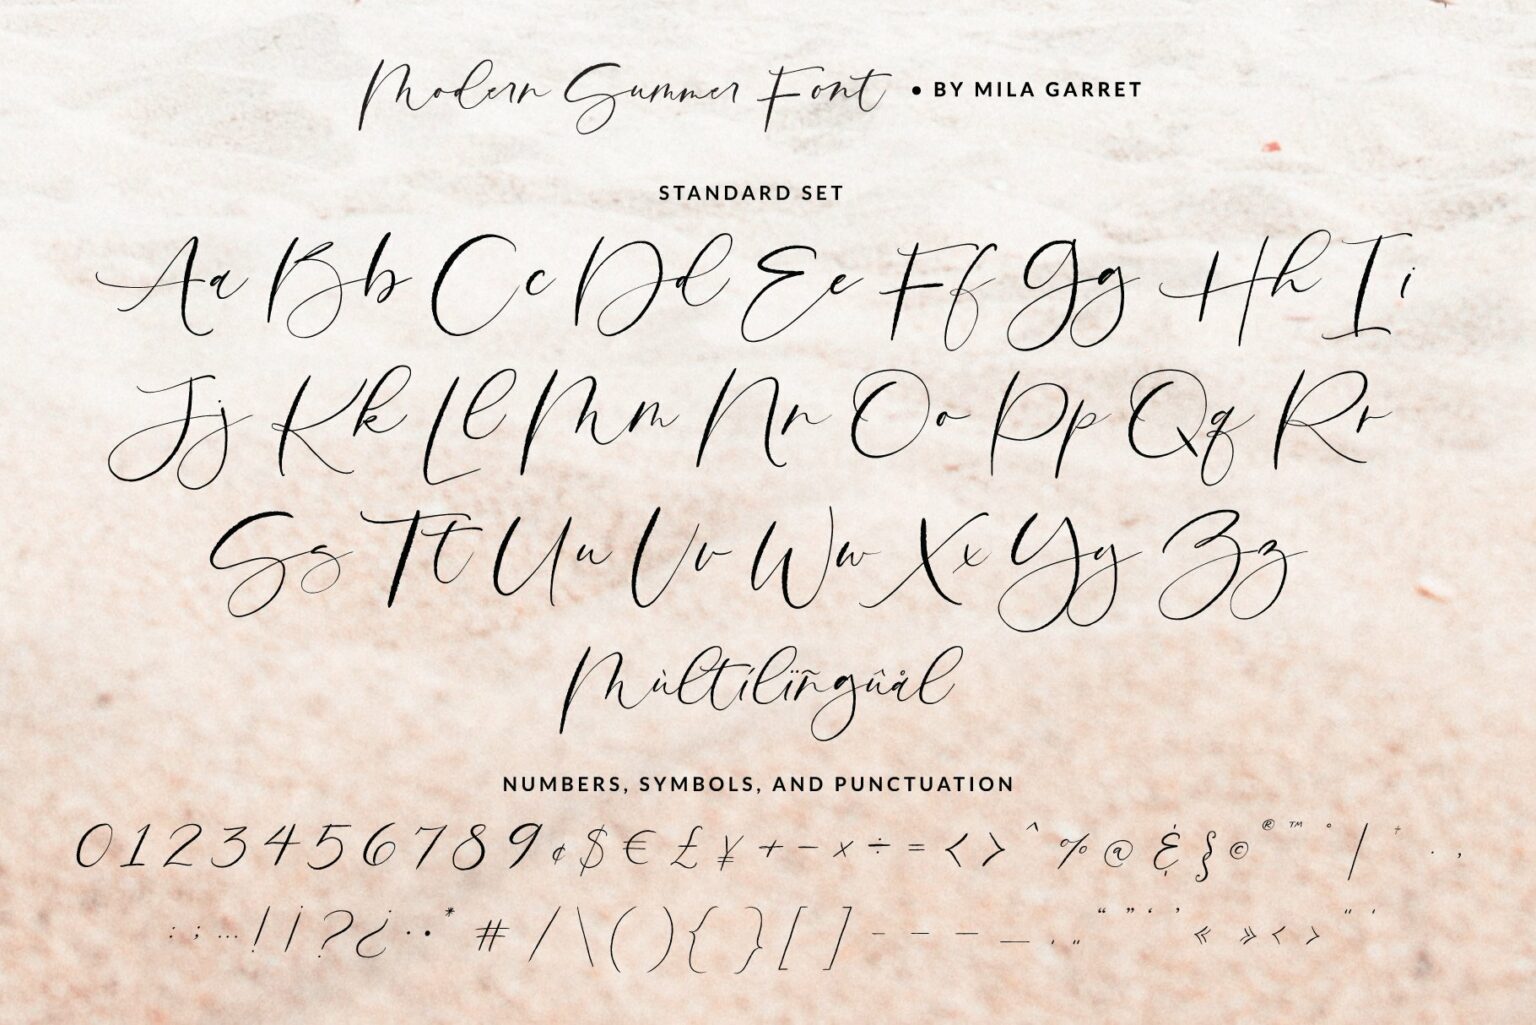 Modern Summer Font • BY MILA GARRET
STANDARD SET
Aa Bb Cc Dd Ee Ff Gg Hh Ii
Jj Kk Ll Mm Nn Oo Pp Qq Rr
Ss Tt Uu Vv Ww Xx Yy Zz
Mùltílïñgûål
NUMBERS, SYMBOLS, AND PUNCTUATION
0 1 2 3 4 5 6 7 8 9 ¢ $ € £ ¥ + − × ÷ = < > ^ % @ & § © ® ™ ° | . ,
: ; … ! ¡ ? ¿ · • * # / \ ( ) { } [ ] - – — _ ‚ „ “ ” ‘ ’ « » ‹ › " '